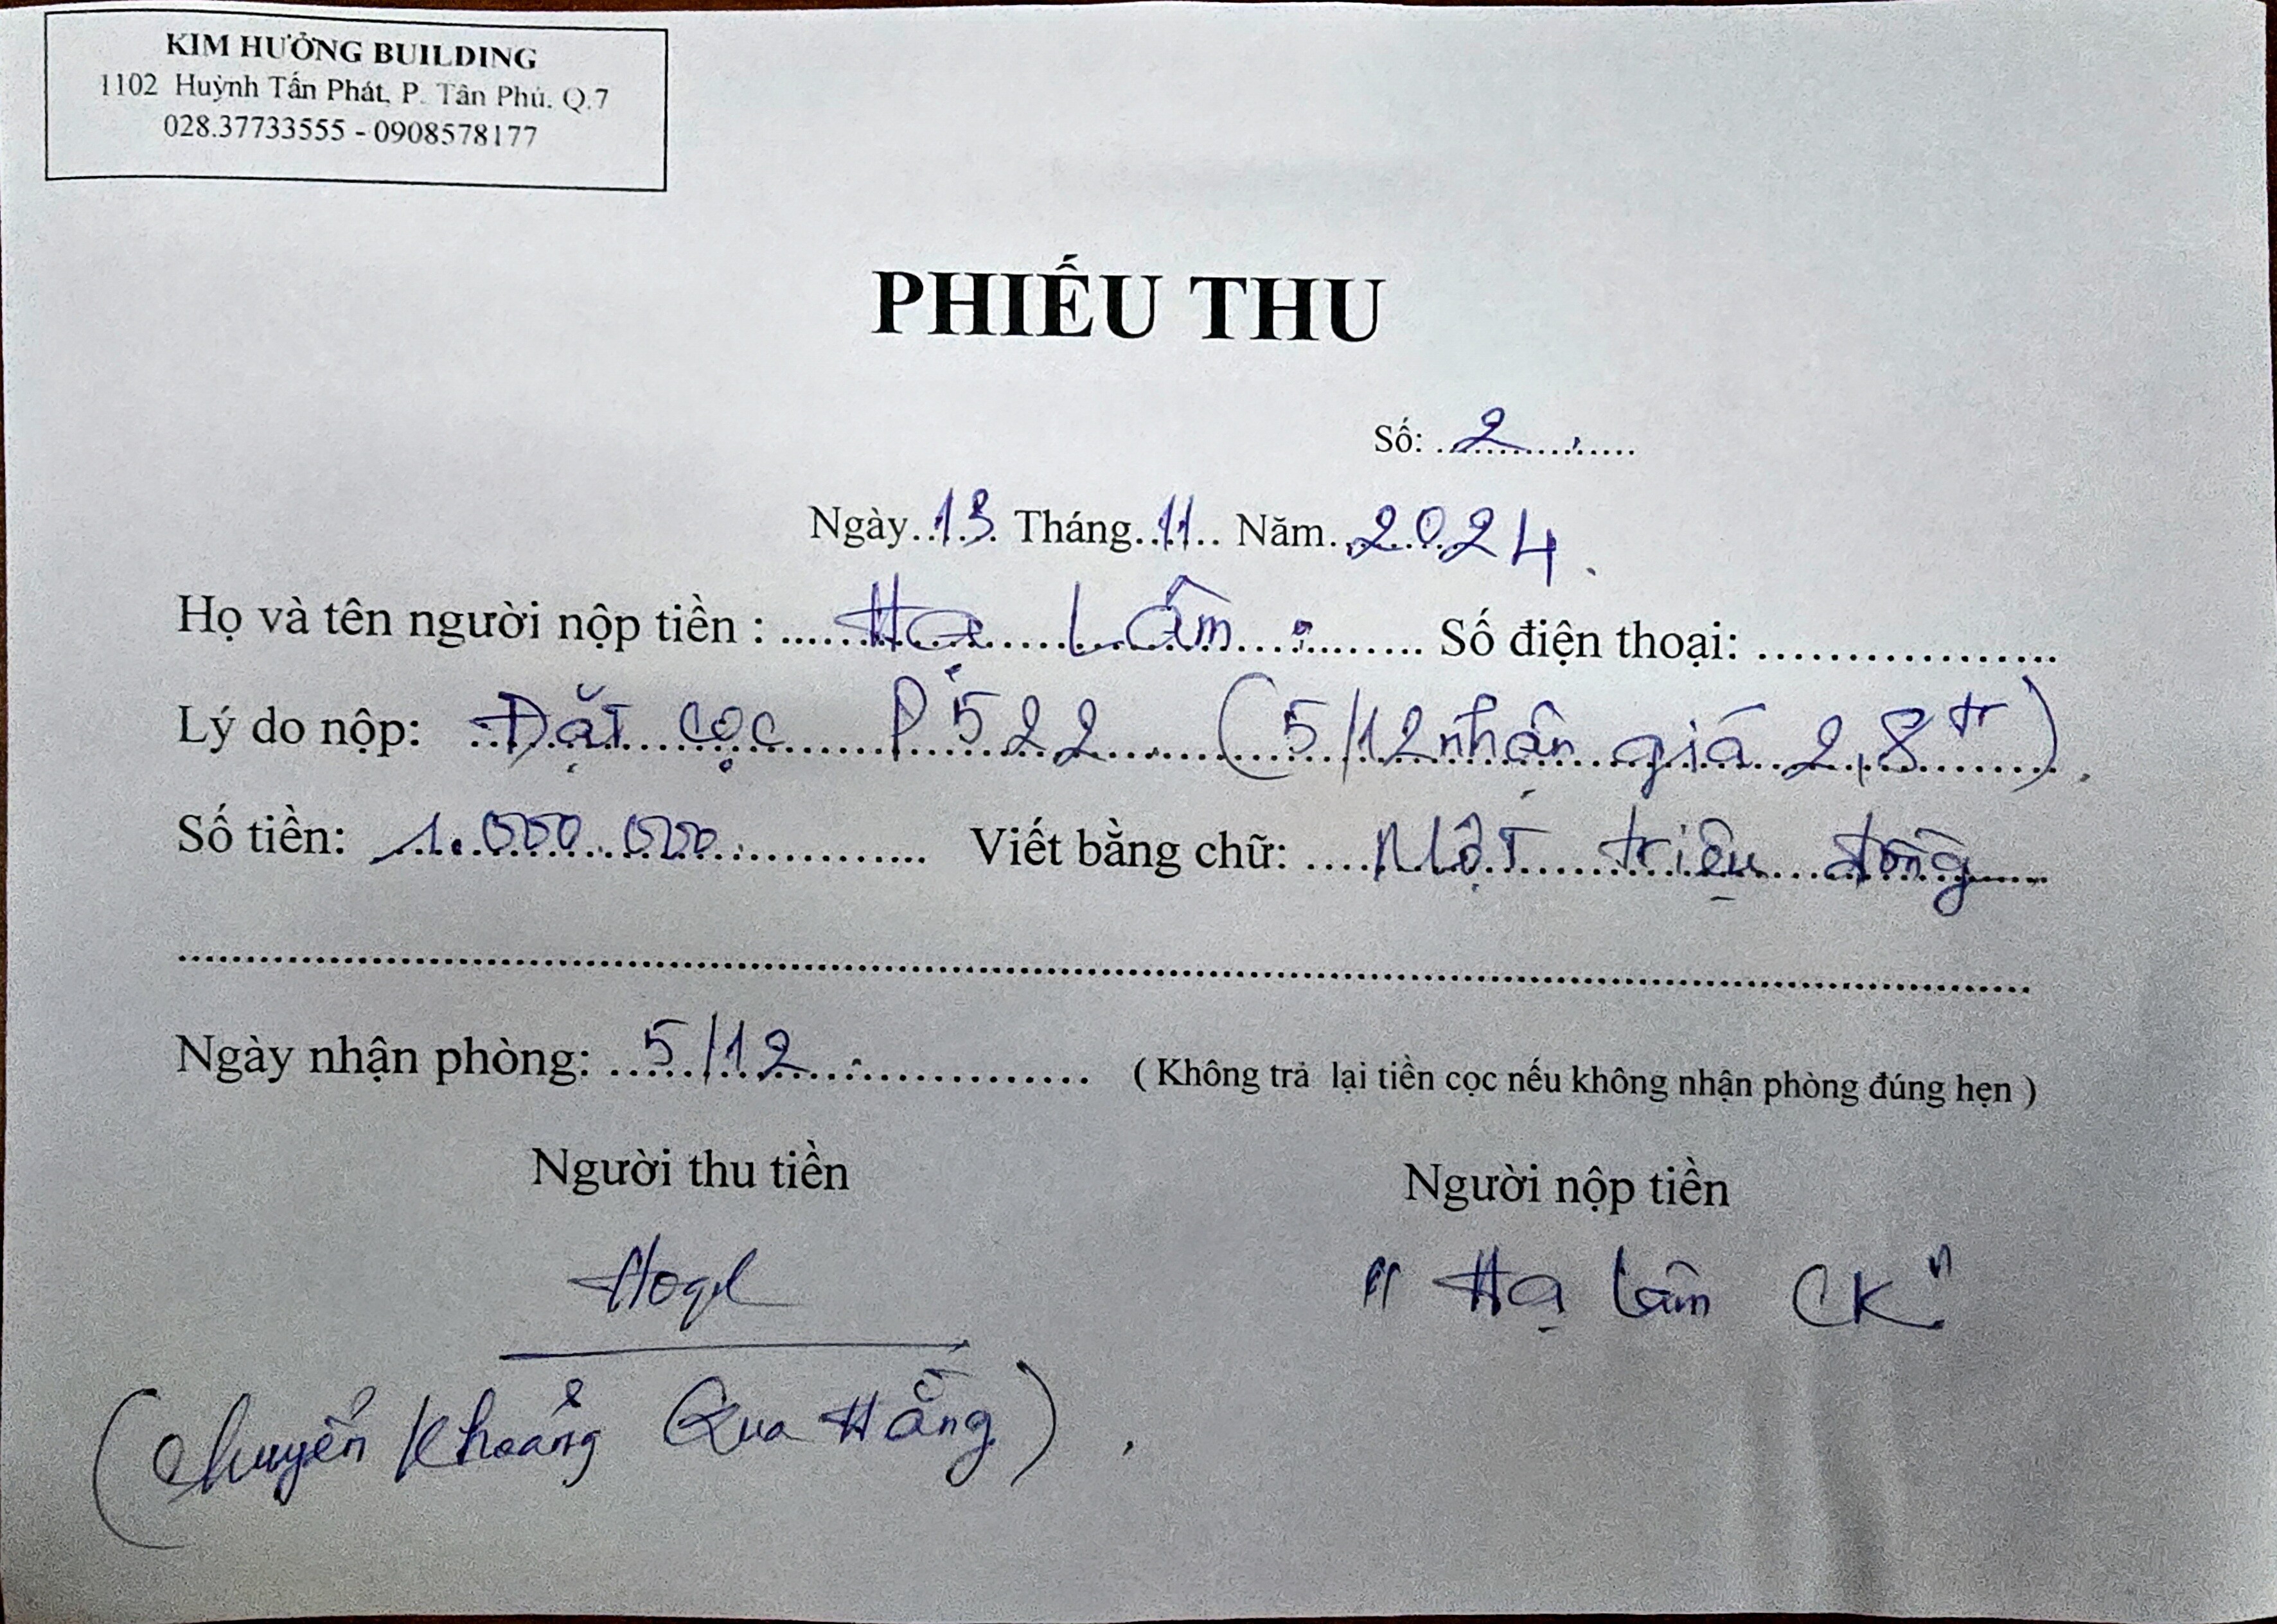 KIM HƯỞNG BUILDING
1102 Huỳnh Tấn Phát, P. Tân Phú. Q.7
028.37733555 - 0908578177
PHIẾU THU
Số: 2
Ngày 13 Tháng 11 Năm 2024.
Họ và tên người nộp tiền : Hạ Lâm Số điện thoại:
Lý do nộp: Đặt cọc P 522 (5/12 nhận giá 2,8tr)
Số tiền: 1.000.000 Viết bằng chữ: Một triệu đồng
Ngày nhận phòng: 5/12 ( Không trả lại tiền cọc nếu không nhận phòng đúng hẹn )
Người thu tiền Người nộp tiền
" Hạ Lâm CK "
(Chuyển Khoảng Qua Hằng)